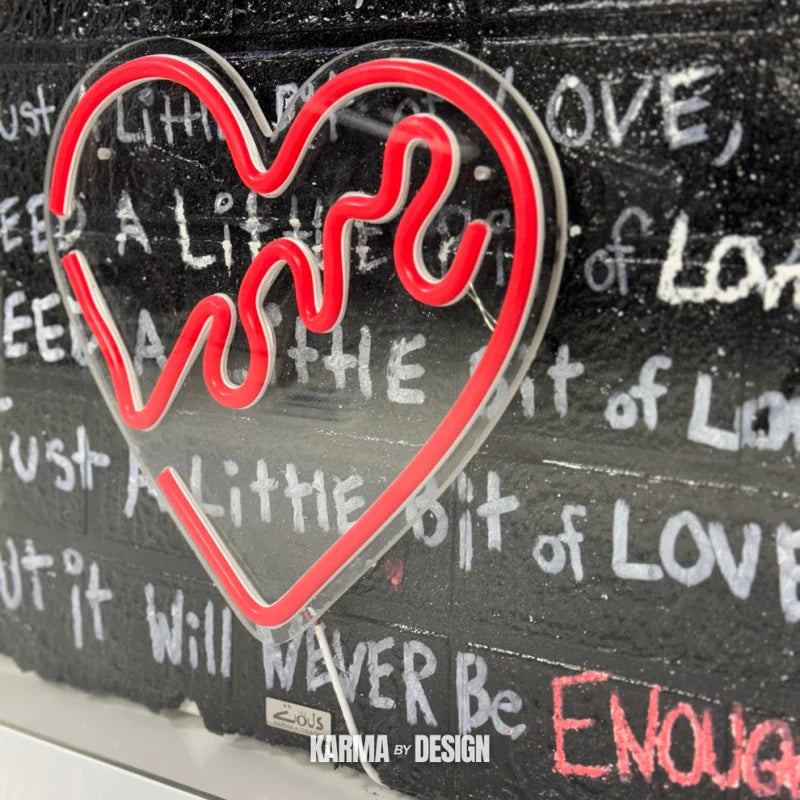 ust A LittlE Bit of LOVE,
EED A LittlE Bit of LOV
EED A LittlE Bit of LOV
Just A LittlE Bit of LOVE
ut it Will NEVER Be ENOUG
KARMA BY DESIGN